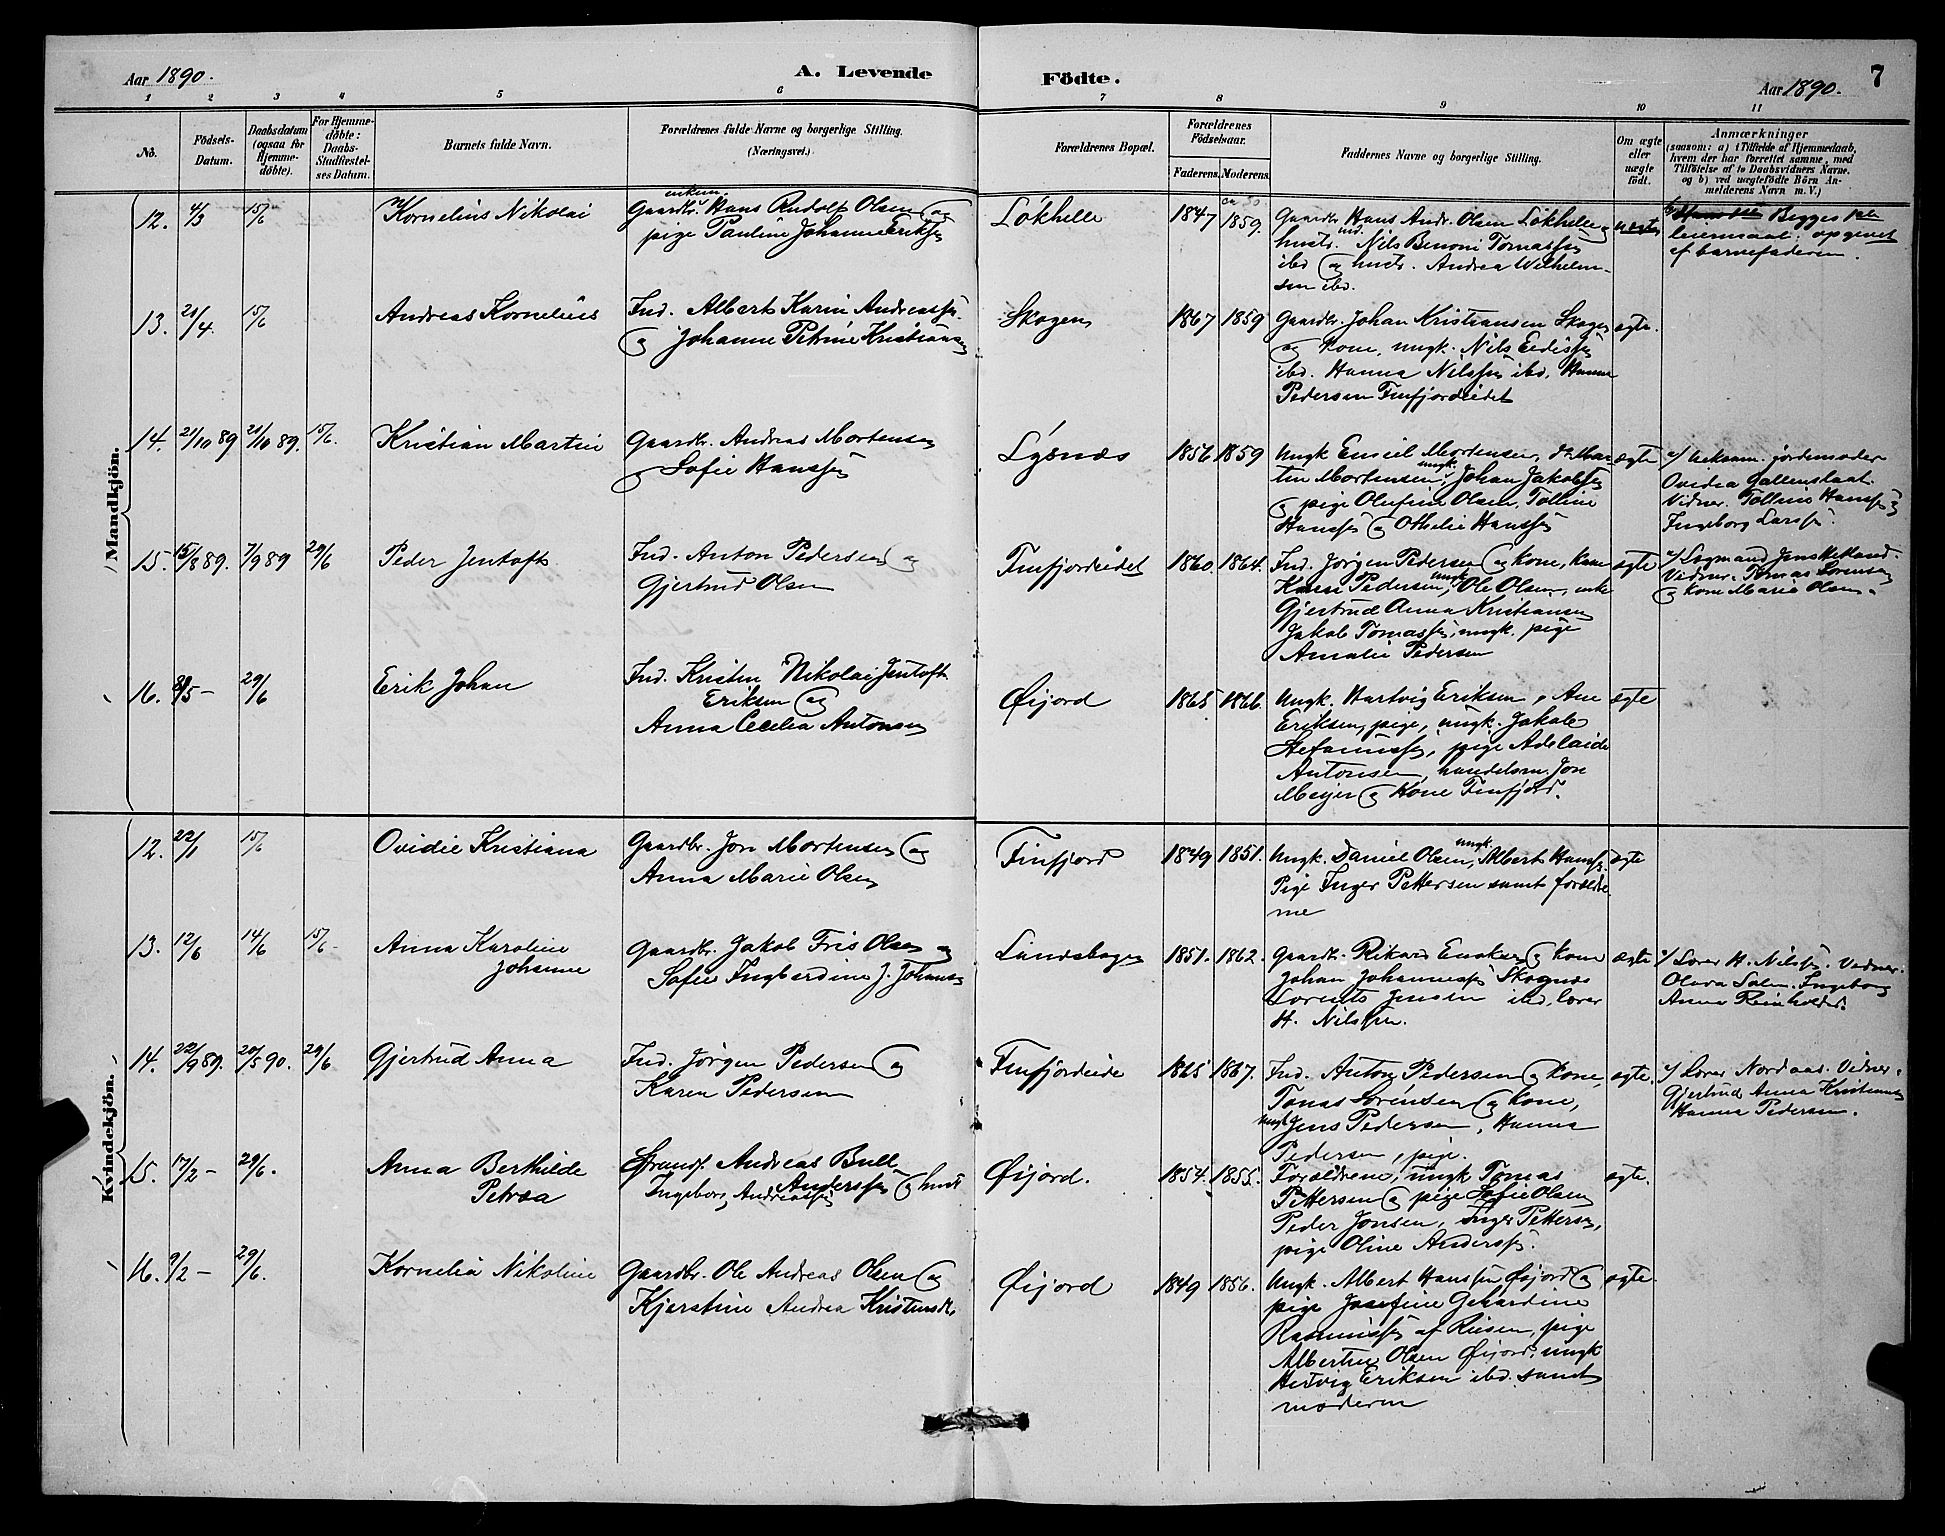 Aar 1890.
A. Levende
Födte.
Aar 1890.
7
1 2 3 4 5 6 7 8 9 10 11
No.
Födsels-Datum.
Daabsdatum (ogsaa for Hjemme-døbte).
For Hjemme-døbte: Daabs-Stadfæstel-ses Datum.
Barnets fulde Navn.
Forældrenes fulde Navne og borgerlige Stilling.
(Næringsvei.)
Forældrenes Bopæl.
Forældrenes Födselsaar.
Faderens. Moderens.
Faddernes Navne og borgerlige Stilling.
Om ægte eller uægte født.
Anmærkninger
(saasom: a) i Tilfælde af Hjemmedaab,
hvem der har forrettet samme, med
Tilføielse af to Daabsvidners Navne.
og b) ved uægtefødte Börn An-
melderens Navn m. V.)
Mandkjön.
12. 4/3 15/6 Kornelius Nikolai
enkem.
Gaardbr. Hans Andolf Olsen og
pige Pauline Johanne Eriksen
Løkhelle 1847 1859.
Gaardbr Hans Andr. Olsen Løkhelle og
hustr. ind. Nils Benoni Tomassen
ibd og hustr. Andrea Wilhelm-
sen ibd.
uægte
Begges 1ste
leiermaal. opgivet
af barnefaderen.
13. 21/4. 15/6 Andreas Kornelius
Ind. Albert Karin Andreassen
og Johanne Petrine Kristiansen
Skogen 1867 1859
Gaardbr. Johan Kristiansen Skogen
og kone, ungk. Nils
ibd. Hanna Nilssen ibd. Hanna
Pedersen Finfjordeidet
ægte.
14. 21/10 89 21/10 89. 15/6. Kristian Martin
Gaardbr. Andreas Mortensen
og Sofie Hanssen
Lysnæs 1856 1859
Ungk Emiel Mortensen, Mar
tin Mortensen, ungk. Johan Jakobsen
og pige Olufine Olsen, Tolline
Hanssen og Othelie Hanssen
ægte
v/ eksam. jordemoder
Ovidea Gallenstaat.
Vidner. Tolline Hanssen og
Ingeborg Larssen.
15. 15/8 89. 7/9 89 29/6 Peder Jentoft
Ind. Anton Pedersen og
Gjertrud Olsen
Finfjordeidet 1860. 1864.
Ind. Jørgen Pedersen og kone, kone
Pedersen, ungk Ole Olsen, enke
Gjertrud Anna Kristiansen
Jakob Tomassen, ungk. pige
Amalie Pedersen
ægte
v/ Lægmand Jens
Vidner. Tomas Sørensen
og kone Marie Olsen.
16. 8/5 - 29/6 Erik Johan
Ind. Kristen Nikolai Jentoft
Eriksen og
Anna Cecilia Antonsen
Øijord 1865 1866.
Ungk. Hartvig Eriksen, Ane
Eriksen, pige, ungk. Jakob
Stefanussen, pige Adelaide
Antonsen, handelsm. Jon
Meijer og Kone Finfjord.
ægte
Kvindekjön.
12. 22/1 15/6 Ovidie Kristiana
Gaardbr. Jon Mortensen og
Anna Marie Olsen
Finfjord 1849 1851.
Ungk. Daniel Olsen, ungk. Albert Hanssen
Pige Inger Pettersen samt foreldre
ne
ægte
13. 12/6 14/6 15/6 - Anna Karoline
Johanne
Gaardbr. Jakob Fris Olsen og
Sofie Ingberdine J. Johans-
1851. 1862.
Gaardbr. Rikard Enoksen og kone
Johan Johannessen Skognæs
Lorents Jensen ibd, lærer
H. Nilssen.
ægte
v/ Lærer H. Nilssen. Vidner.
Olava Solem. Ingeborg
Anna Reinholdts.
14. 22/9 89. 20/5 90. 29/6 Gjertrud Anna
Ind. Jørgen Pedersen og
Karen Pedersen
Finfjordeide 1865 1867.
Ind. Anton Pedersen og kone,
Tomas Sørensen og kone,
ungk Jens Pedersen, Hanna
Pedersen, pige.
ægte.
v/ Lærer Nordaas. Vidner.
Gjertrud Anna Kristiansen
Hanna Pedersen.
15. 17/2 - 29/6. Anna Berthilde
Petrea
Strands. Andreas Bull
Anderssen og hust
Ingeborg Andreassen
Øijord. 1854. 1855.
Forældrene, ungk Tomas
Pettersen og pige Sofie Olsen
Peder Jonsen, Inger Pettersen,
pige Oline Anderssen.
ægte.
16. 9/2 - 29/6. Kornelia Nikoline
Gaardbr. Ole Andreas Olsen og
Kjerstine Andrea Kristensdtr.
Øijord 1849 1856.
Ungk. Albert Hanssen Øijord og
pige Josefine Gehardine
Rasmussen af Reisen, pige
Albertine Olsen Øijord, ungk
Hertvig Eriksen ibd. samt
moderen
ægte.